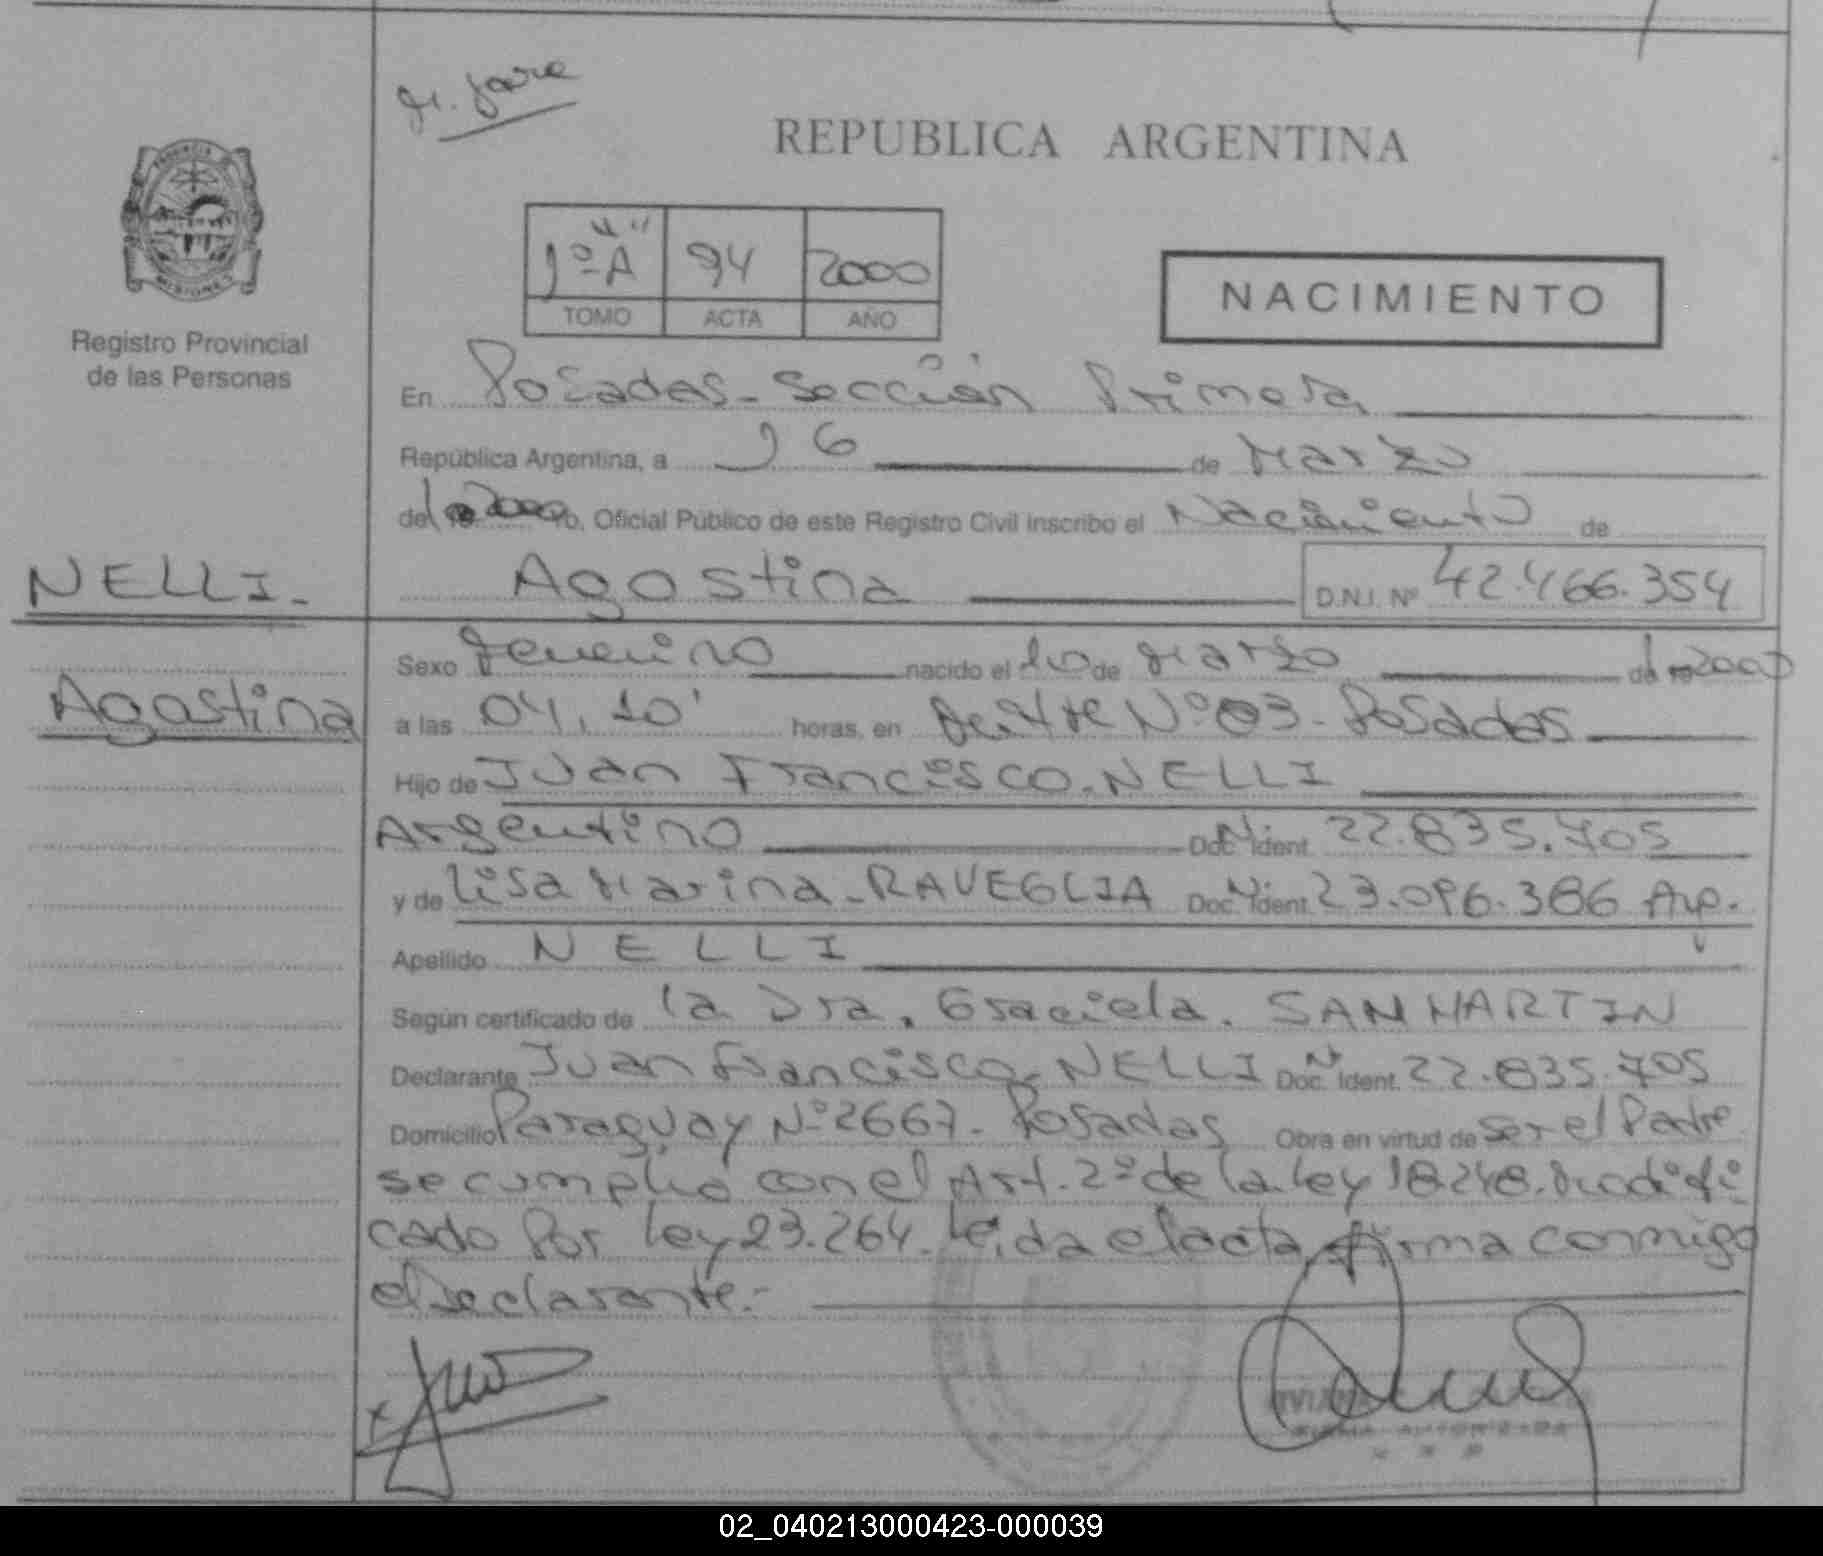 REPUBLICA ARGENTINA
PROVINCIA DE
MISIONES
Registro Provincial
de las Personas
1º "A" 94 2000
TOMO ACTA AÑO
NACIMIENTO
En Posadas - Sección Primera
República Argentina, a 16 de Marzo
del 2000 yo, Oficial Público de este Registro Civil inscribo el Nacimiento de
NELLI.-
Agostina D.N.I. Nº 42.466.354
Agostina
Sexo femenino nacido el 10 de Marzo del 2000
a las 04,10' horas, en Nº 03 - Posadas
Hijo de Juan Francisco NELLI
Argentino Doc. Ident. 22.835.705
y de Lisa Marina - RAVEGLIA Doc. Ident. 23.096.386 Arg.
Apellido NELLI
Según certificado de la Dra. Graciela. SAN MARTIN
Declarante Juan Francisco NELLI Doc. Ident. 22.835.705
Domicilio Paraguay Nº 2667 - Posadas Obra en virtud de ser el Padre
se cumplió con el Art. 2º de la Ley 18.248. Modifi
cado Por Ley 23.264. Leída el acta, firma conmigo
el Declarante.-
02_040213000423-000039